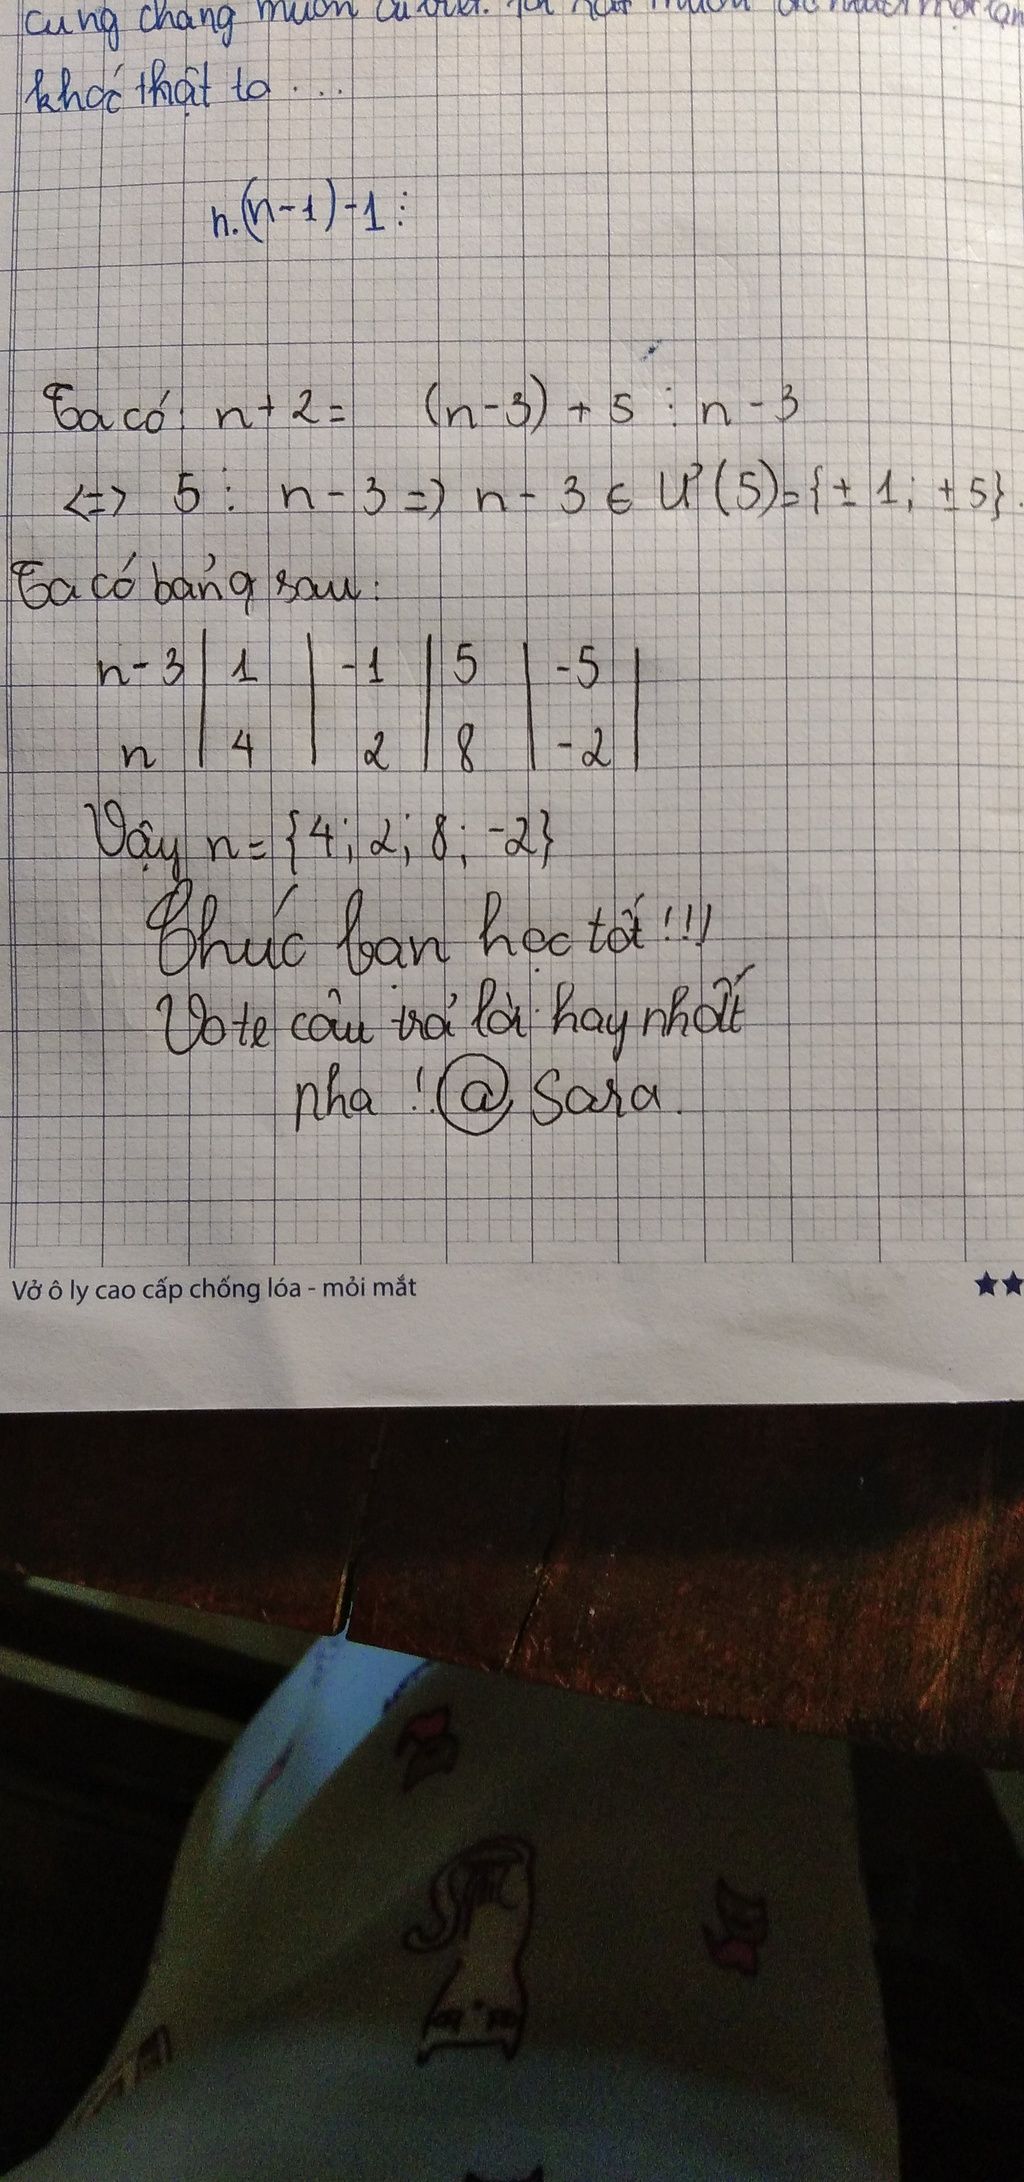 cũng chẳng muốn
khóc thật to...
n.(n-1)-1⋮
Ta có: n+2= (n-3)+5 ⋮ n-3
<=> 5 ⋮ n-3 => n-3 ∈ Ư(5)={±1; ±5}.
Ta có bảng sau:
n-3 | 1 | -1 | 5 | -5 |
n | 4 | 2 | 8 | -2 |
Vậy n={4; 2; 8; -2}
Chúc bạn học tốt!!!
Vote câu trả lời hay nhất
nha! @ Sara.
Vở ô ly cao cấp chống lóa - mỏi mắt